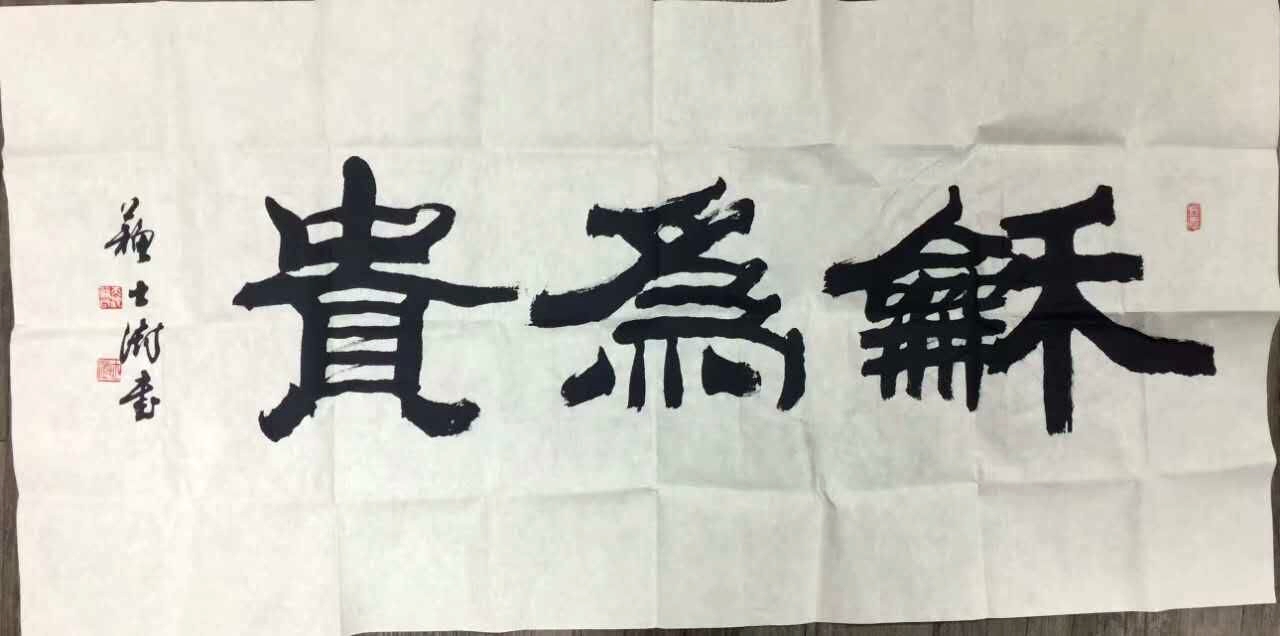 龢爲貴
蘇士澍書